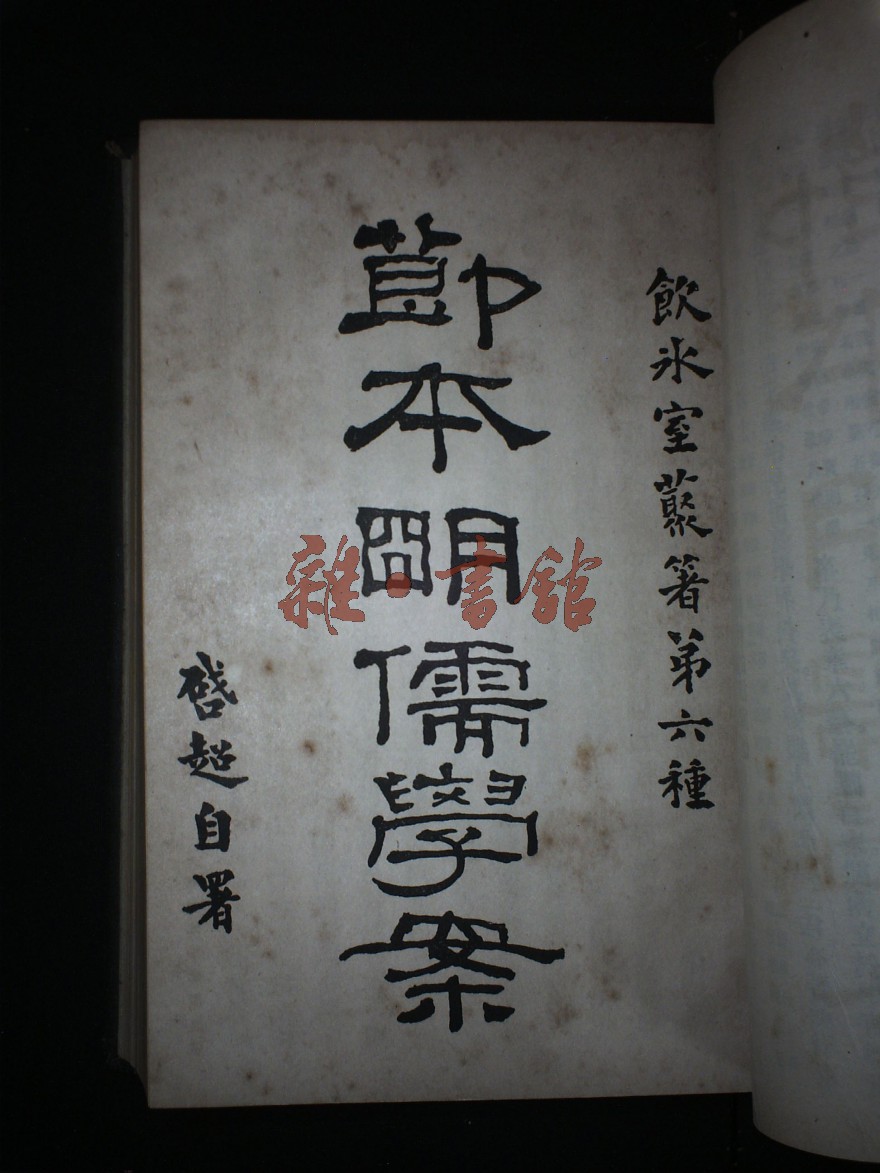 飲氷室叢著第六種
節本明儒學案
啓超自署
雜·書館